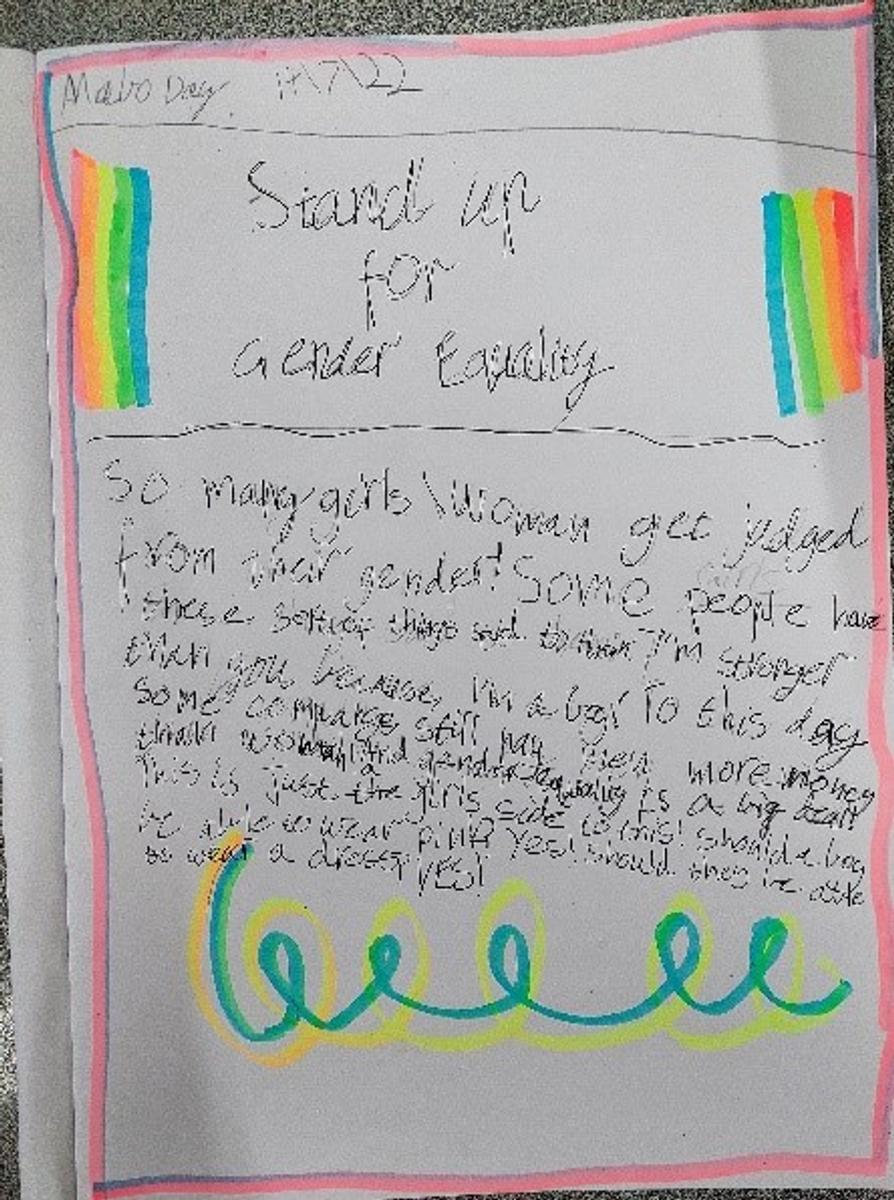 Mabo Day 1+\7\22
Stand up
for
Gender Equality
So many girls \ woman get judged
from their gender! Some people have
these sort of things said to them "I'm stronger
then you because, im a boy" To this day
some companies still pay men more money
than woman! And gender equality is a big deall
This is just the girls side to this! should a boy
be able to wear pink? Yes! should they be able
to wear a dress? YES!